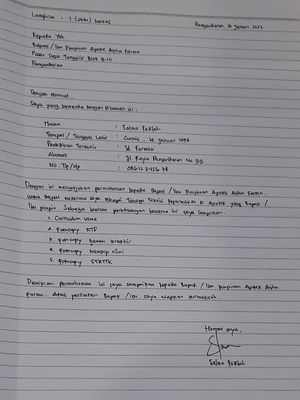 Lampiran : 1 (satu) berkas
Pangandaran, 14 Januari 2022
Kepada Yth
Bapak / Ibu Pimpinan Apotek Aisha Farma
Pasar Desa Tunggilis Blok B-10
Pangandaran
Dengan Hormat,
Saya yang bertanda tangan dibawah ini :
Nama : Salwa Fadilah
Tempat / Tanggal Lahir : Ciamis, 14 Januari 1999
Pendidikan Terakhir : D3 Farmasi
Alamat : Jl. Raya Pangandaran No 313
No. Tlp / Hp : 08612345678
Dengan ini mengajukan permohonan kepada Bapak / Ibu Pimpinan Apotek Aisha Farma,
untuk dapat Tenaga Teknis Kefarmasian di Apotek yang Bapak /
Ibu pimpin. Sebagai bahan pertimbangan bersama ini saya lampirkan :
1. Curriculum Vitae
2. Fotocopy KTP
3. Fotocopy Ijazah terakhir
4. Fotocopy transkrip nilai
5. Fotocopy STRTTK
Demikian permohonan ini saya sampaikan kepada Bapak / Ibu Pimpinan Apotek Aisha
Farma. Atas perhatian Bapak / Ibu, saya ucapkan terimakasih.
Hormat saya,
Salwa Fadilah